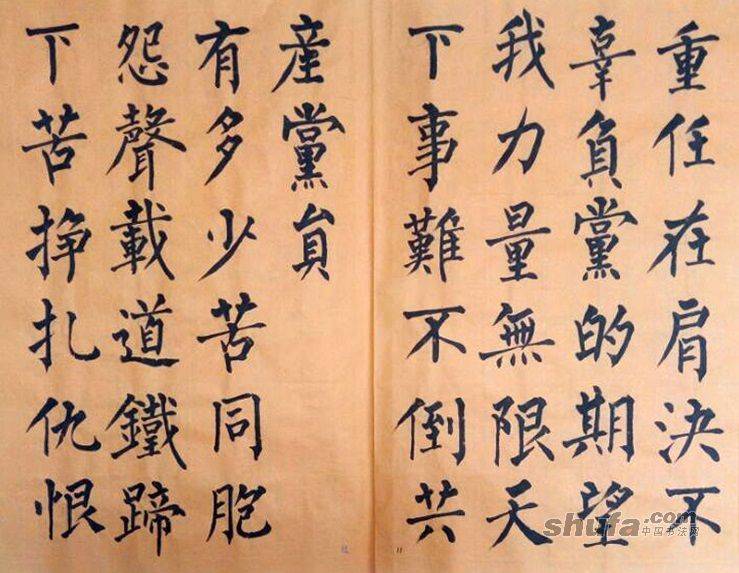 重任在肩決不
辜負黨的期望
我力量無限天
下事難不倒共
產黨員
有多少苦同胞
怨聲載道鐵蹄
下苦掙扎仇恨
11
shufa.com
中国书法网